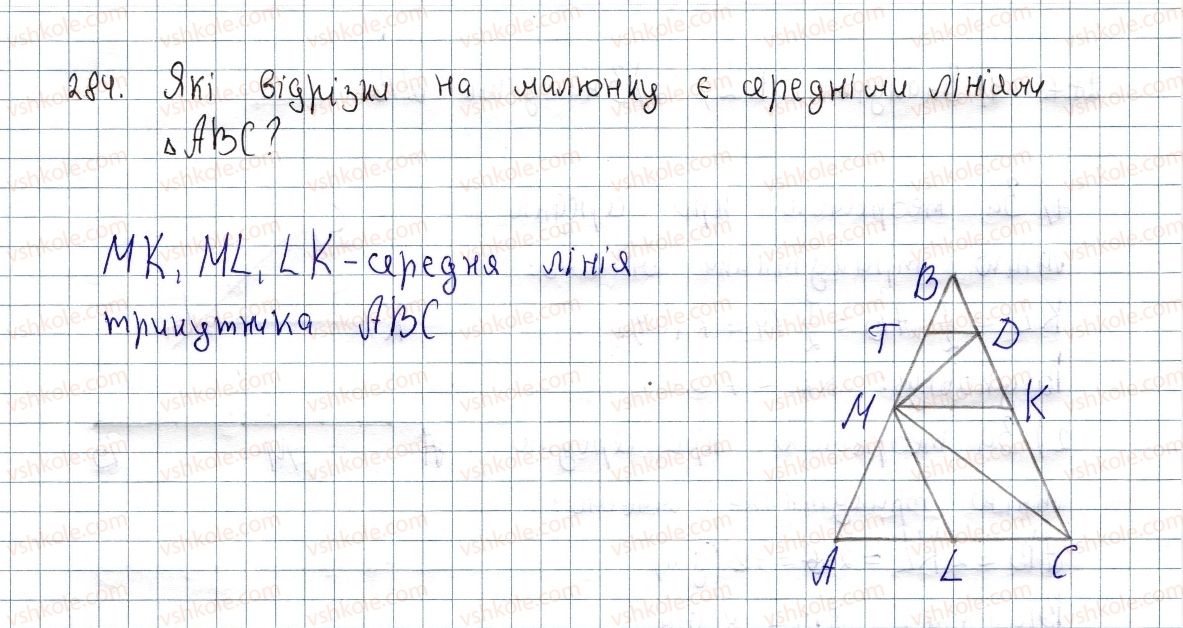 284. Які відрізки на малюнку є середніми лініями
△ABC?
MK, ML, LK - середня лінія
трикутника ABC
B
T D
M K
A L C
vshkole.com